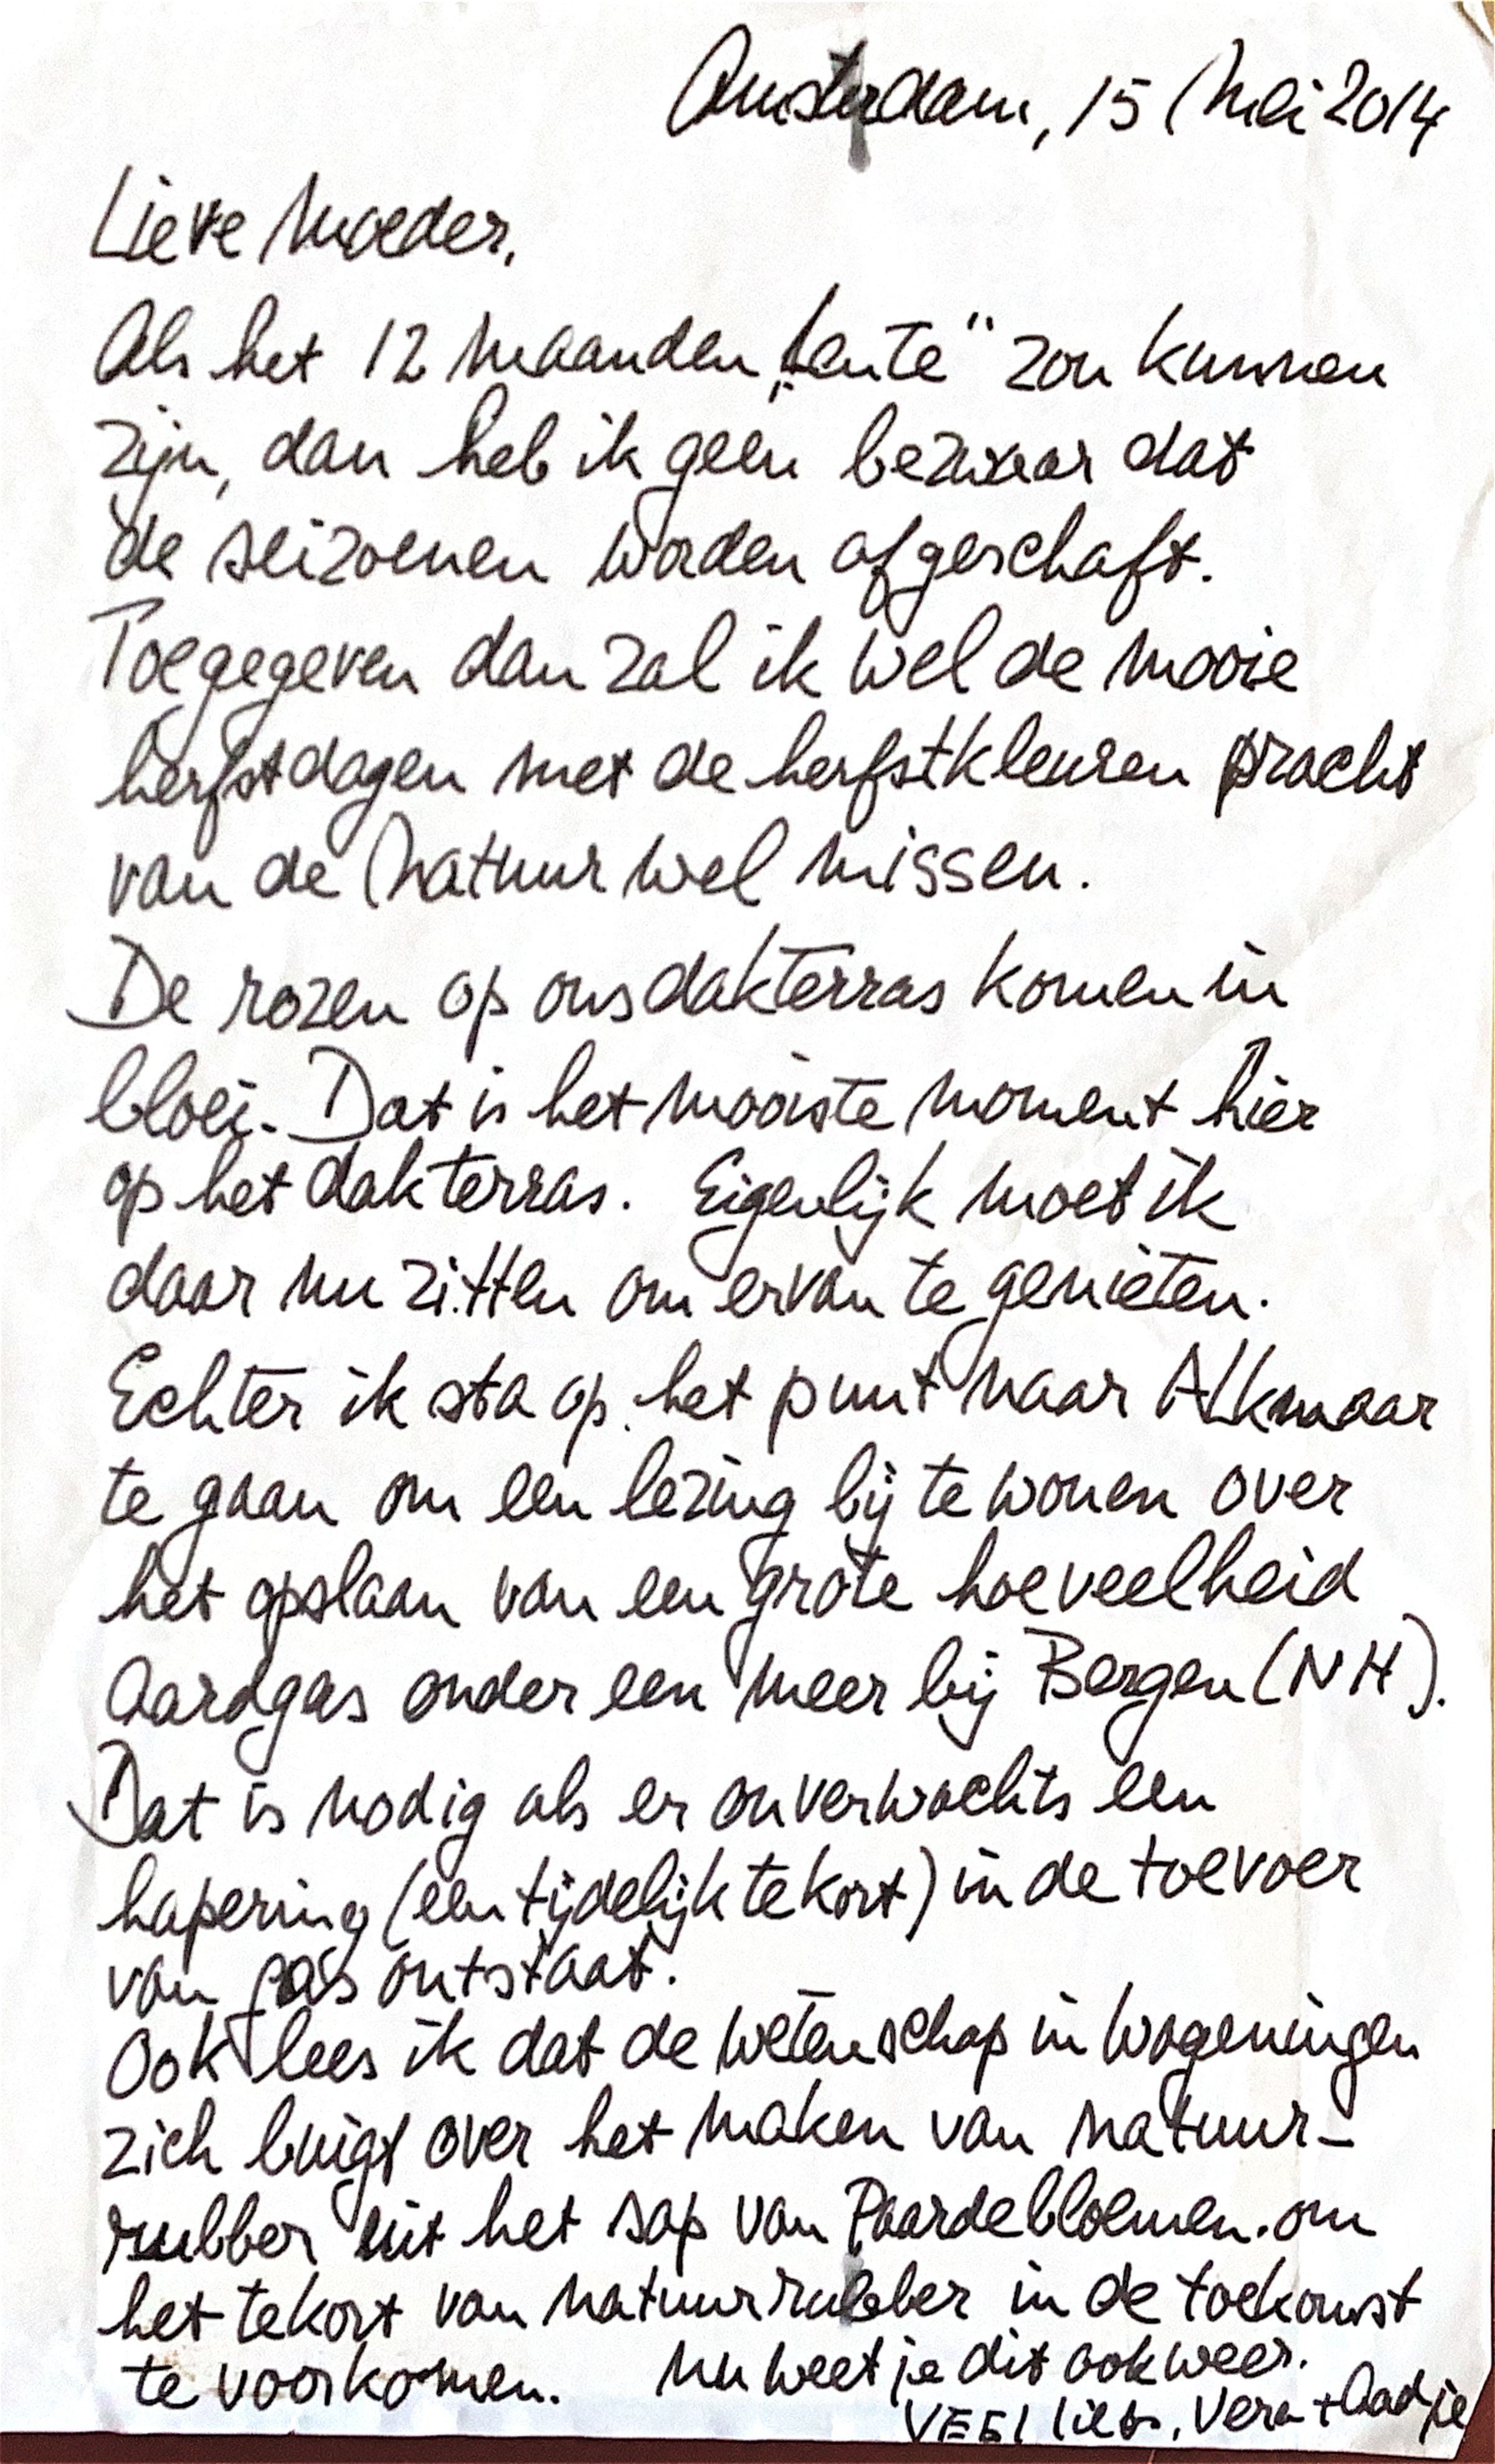 Amsterdam, 15 Mei 2014
Lieve Moeder,
Als het 12 maanden „Lente” zou kunnen
zijn, dan heb ik geen bezwaar dat
de seizoenen worden afgeschaft.
Toegegeven dan zal ik wel de mooie
herfstdagen met de herfstkleuren pracht
van de Natuur wel missen.
De rozen op ons dakterras komen in
bloei. Dat is het mooiste moment hier
op het dakterras. Eigenlijk moet ik
daar nu zitten om ervan te genieten.
Echter ik sta op het punt naar Alkmaar
te gaan om een lezing bij te wonen over
het opslaan van een grote hoeveelheid
Aardgas onder een meer bij Bergen (NH).
Dat is nodig als er onverwachts een
hapering (een tijdelijk tekort) in de toevoer
van gas ontstaat.
Ook lees ik dat de wetenschap in Wageningen
zich buigt over het maken van natuur-
rubber uit het sap van Paardebloemen. om
het tekort van natuurrubber in de toekomst
te voorkomen. Nu weet je dit ook weer.
VEEL liefs, Vera + Aadje